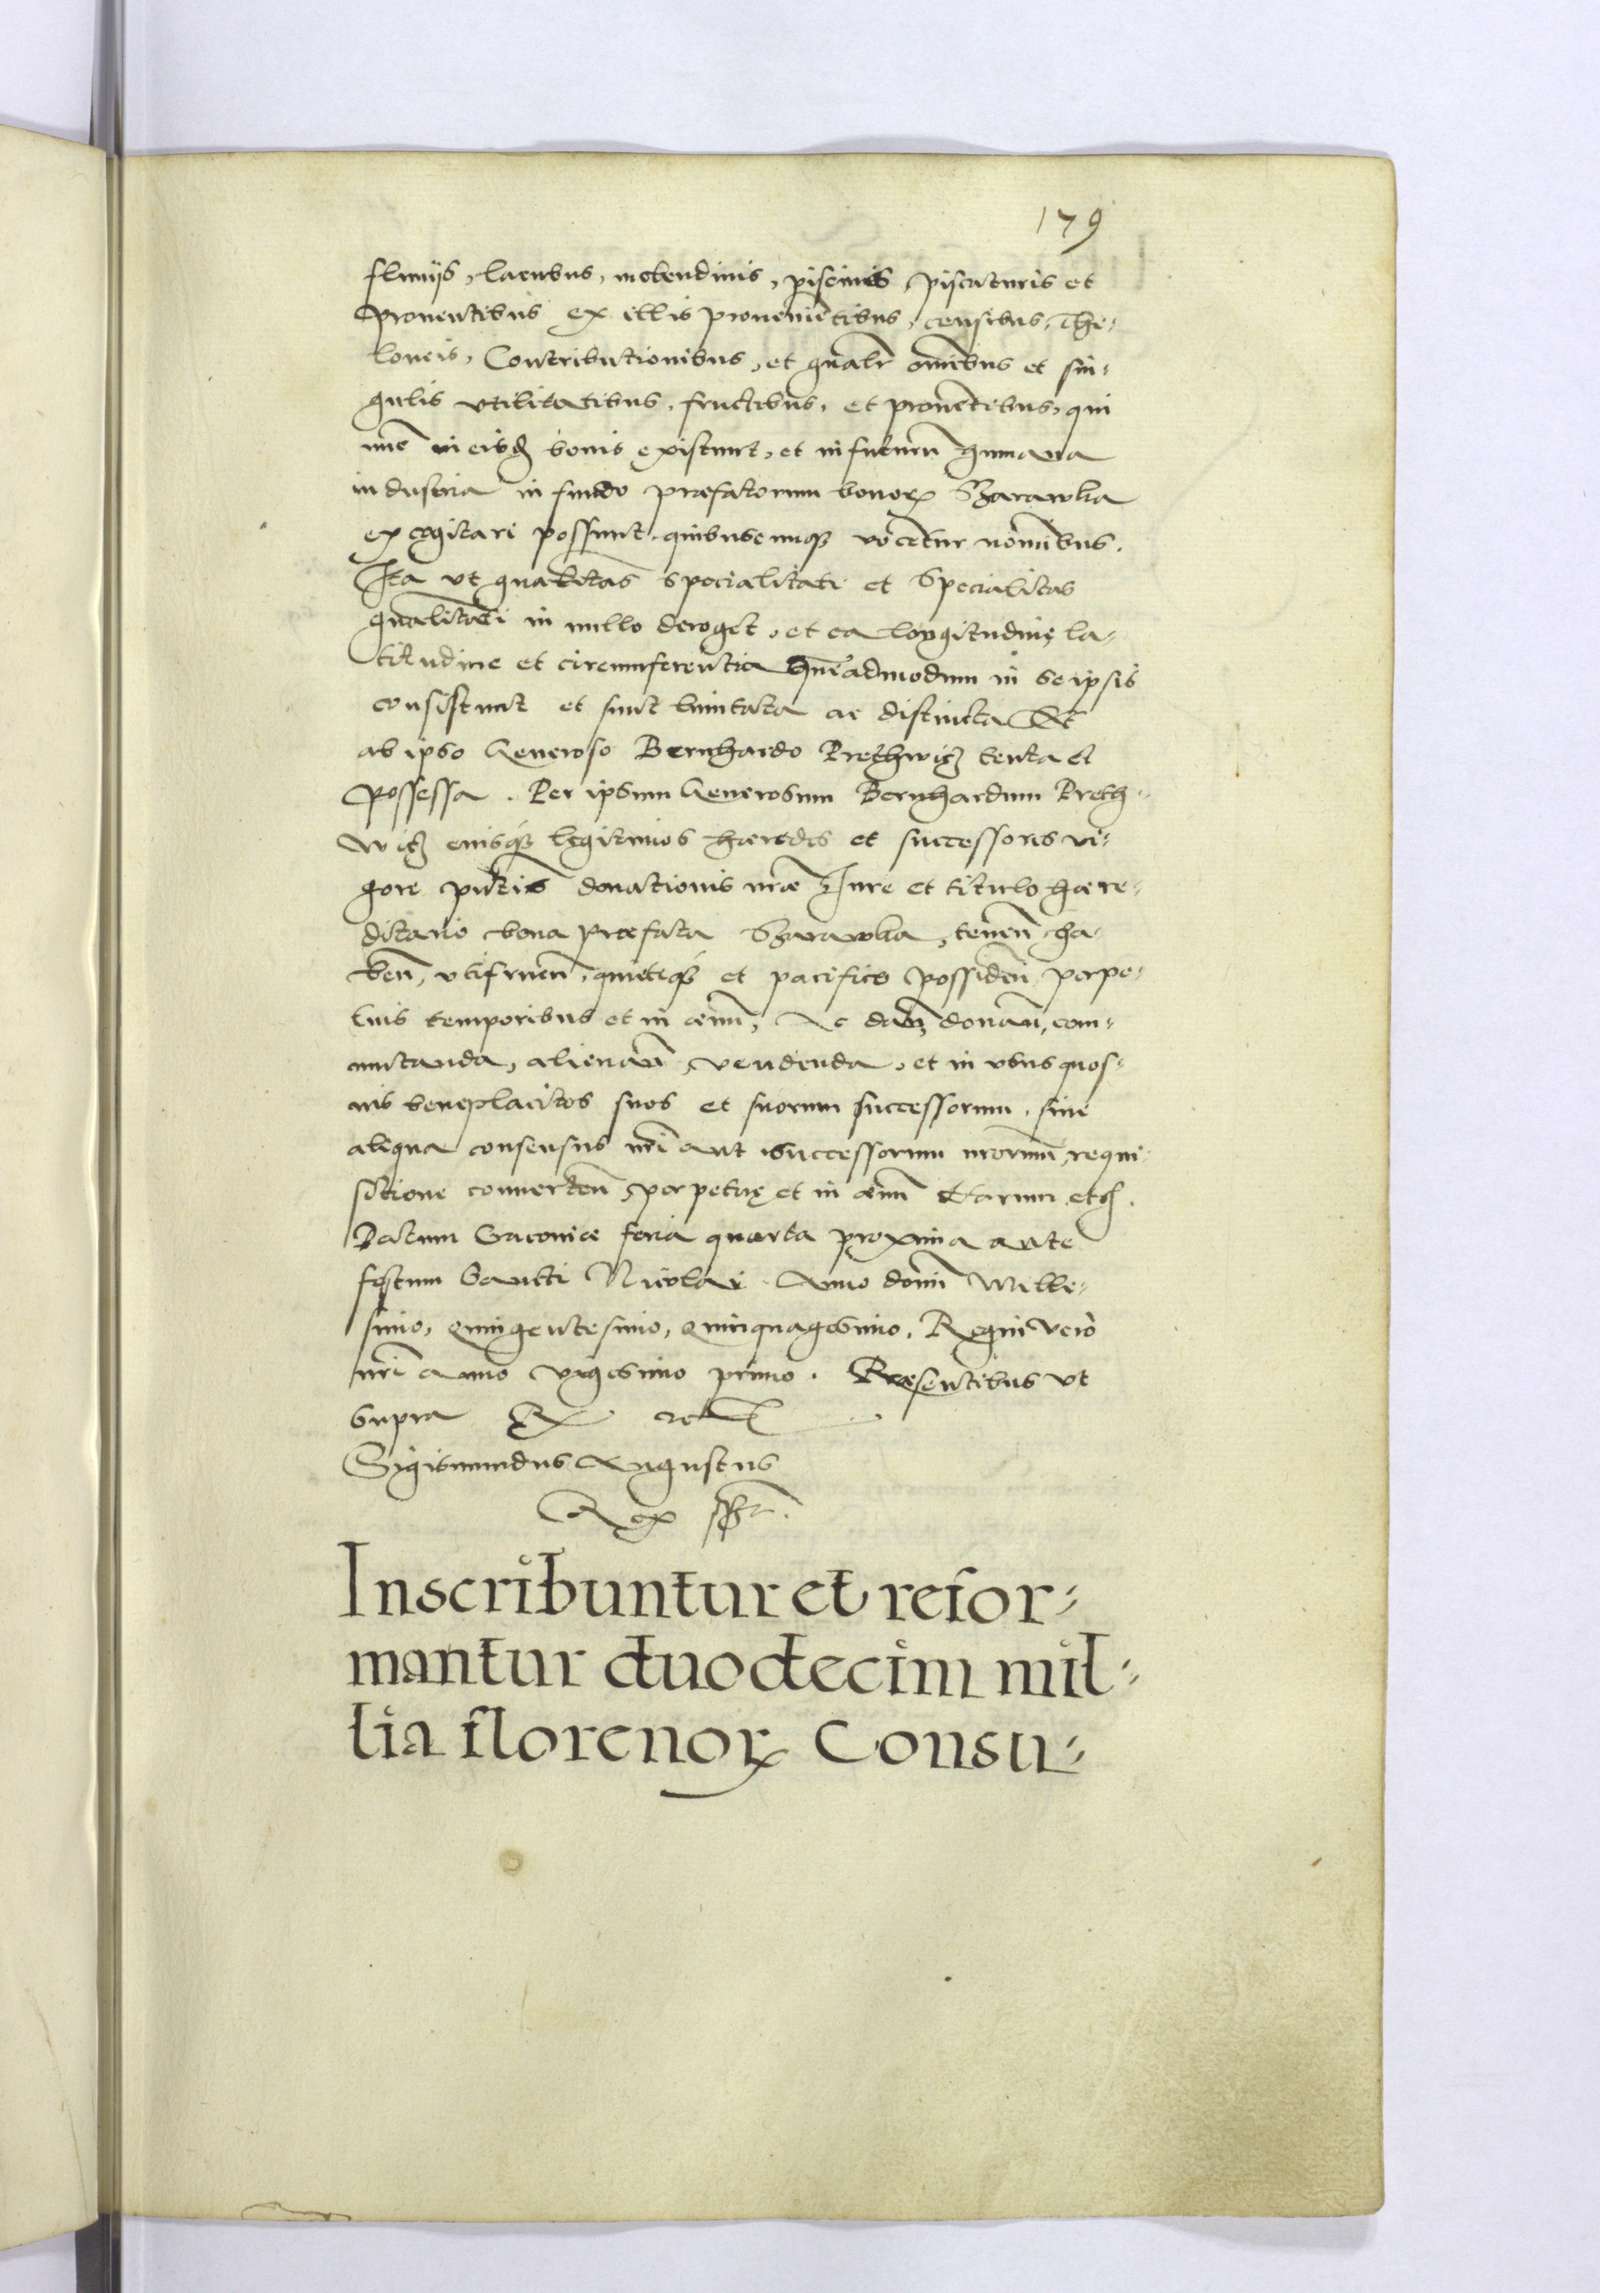 179
fluuijs, lacubus, molendinis, piscinis, piscaturis et
prouentibus ex illis prouenietibus, censibus, The-
loneis, Contributionibus, et gnalr omibus et sin-
gulis vtilitatibus, fructibus, et prouetibus, qui
nuc in eisd bonis existunt, et in futuru humana
industria in fundo præfatorum bonorꝝ Szarawka
excogitari possunt, quibuscunqꝫ vocetur nominibus.
Ita vt gnalitas specialitati et Specialitas
gnalitati in nullo deroget, et ea longitudine la-
titudine et circumferentia quēadmodum in seipsis
consistunt et sunt limitata ac distincta Et
ab ipso Generoso Bernhardo Prethwicz tenta et
possessa. Per ipsum Generosum Bernhardum Preth-
wicz eiusqꝫ legitimos hæredes et successores vi-
gore pntis donationis nræ Iure et titulo hære-
ditario bona præfata Szarawka, tenen ha-
ben, vtifruen, quieteqꝫ et pacifice possiden perpe-
tuis temporibus et in æuu, Ac dan donan, com-
mutanda, alienan vendenda, et in vsus quos-
uis beneplacitos suos et suorum successorum, sine
aliqua consensus nri aut successorum nrorum requi-
sitione conuerten perpetuę et in æuu Harum etc.
Datum Cracouiæ feria quarta proxima ante
festum Sancti Nicolai Anno domi Mille-
simo, quingentesimo, quinquagesimo, Regni vero
nri Anno vigesimo primo. Præsentibus vt
supra
Sigismundus Augustus
Rex sst.
Inscribuntur et refor-
mantur duodecim mil-
lia florenorꝝ Consu-